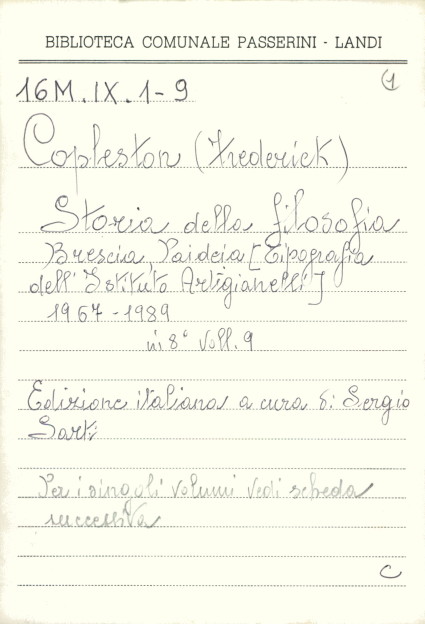 BIBLIOTECA COMUNALE PASSERINI - LANDI
1
16M.IX.1-9
Copleston (Frederick)
Storia della filosofia
Brescia, Paideia [Tipografia
dell'Istituto Artigianelli]
1967-1989
in 8° Voll. 9
Edizione italiana a cura di Sergio
Sarti
Per i singoli volumi vedi scheda
successiva
C